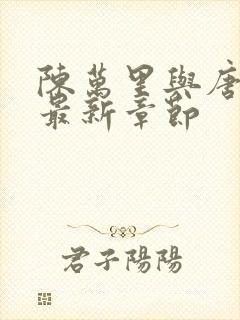 陳萬里與唐
最新章節
君子陽陽